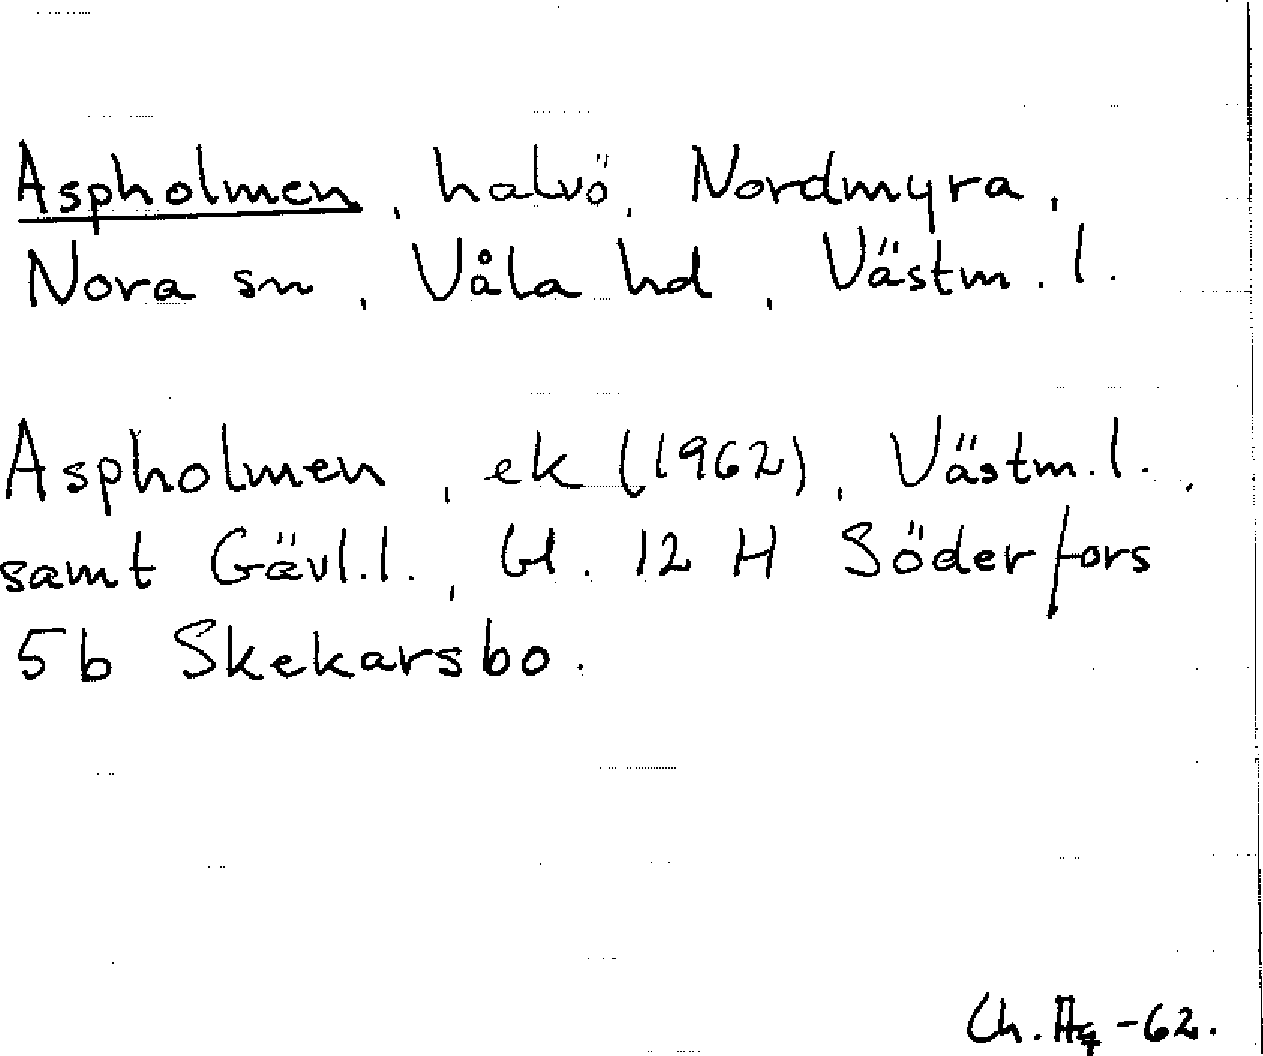 Aspholmen, halvö, Nordmyra,
Nora sn, Våla hd, Västm. l.
Aspholmen, ek (1962), Västm. l.,
samt Gävl. l., bl. 12 H Söderfors
5b Skekarsbo.
Ch. -62.